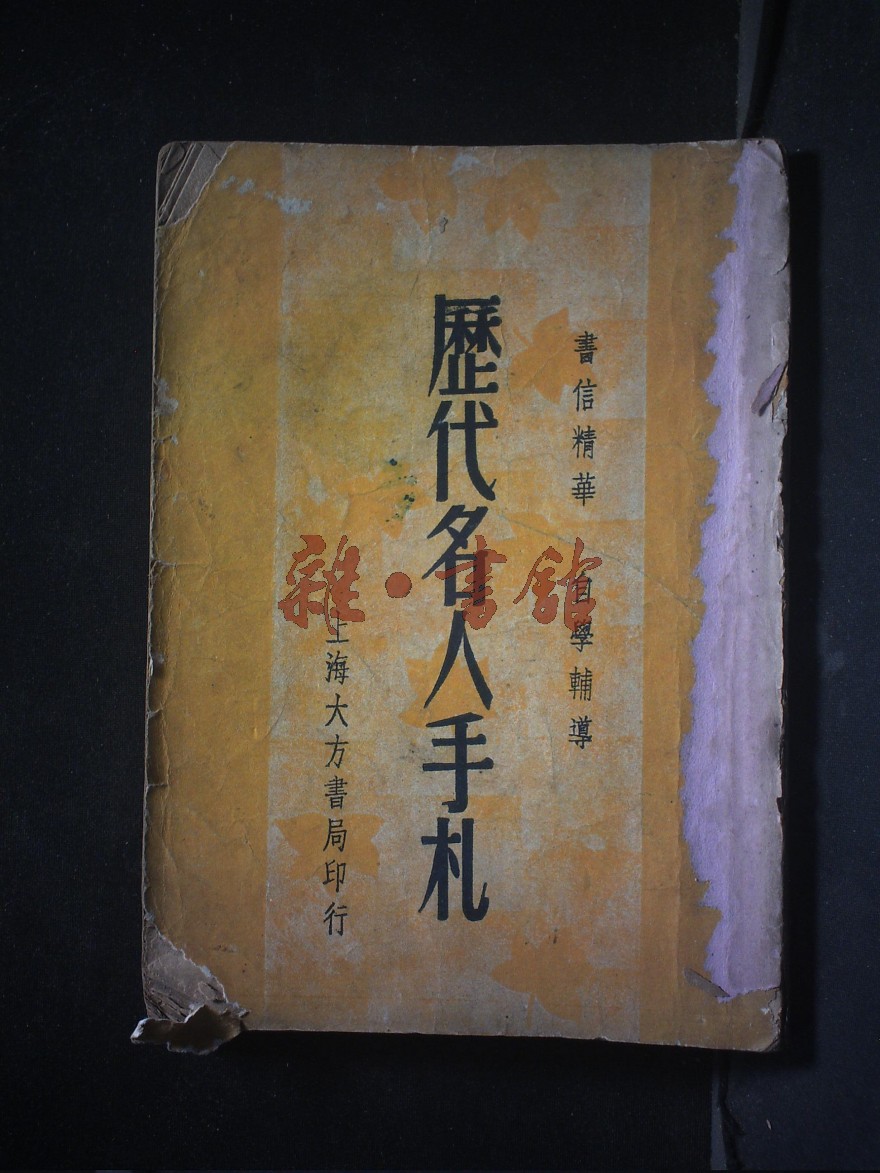 書信精華 自學輔導
歷代名人手札
上海大方書局印行
雜·書館